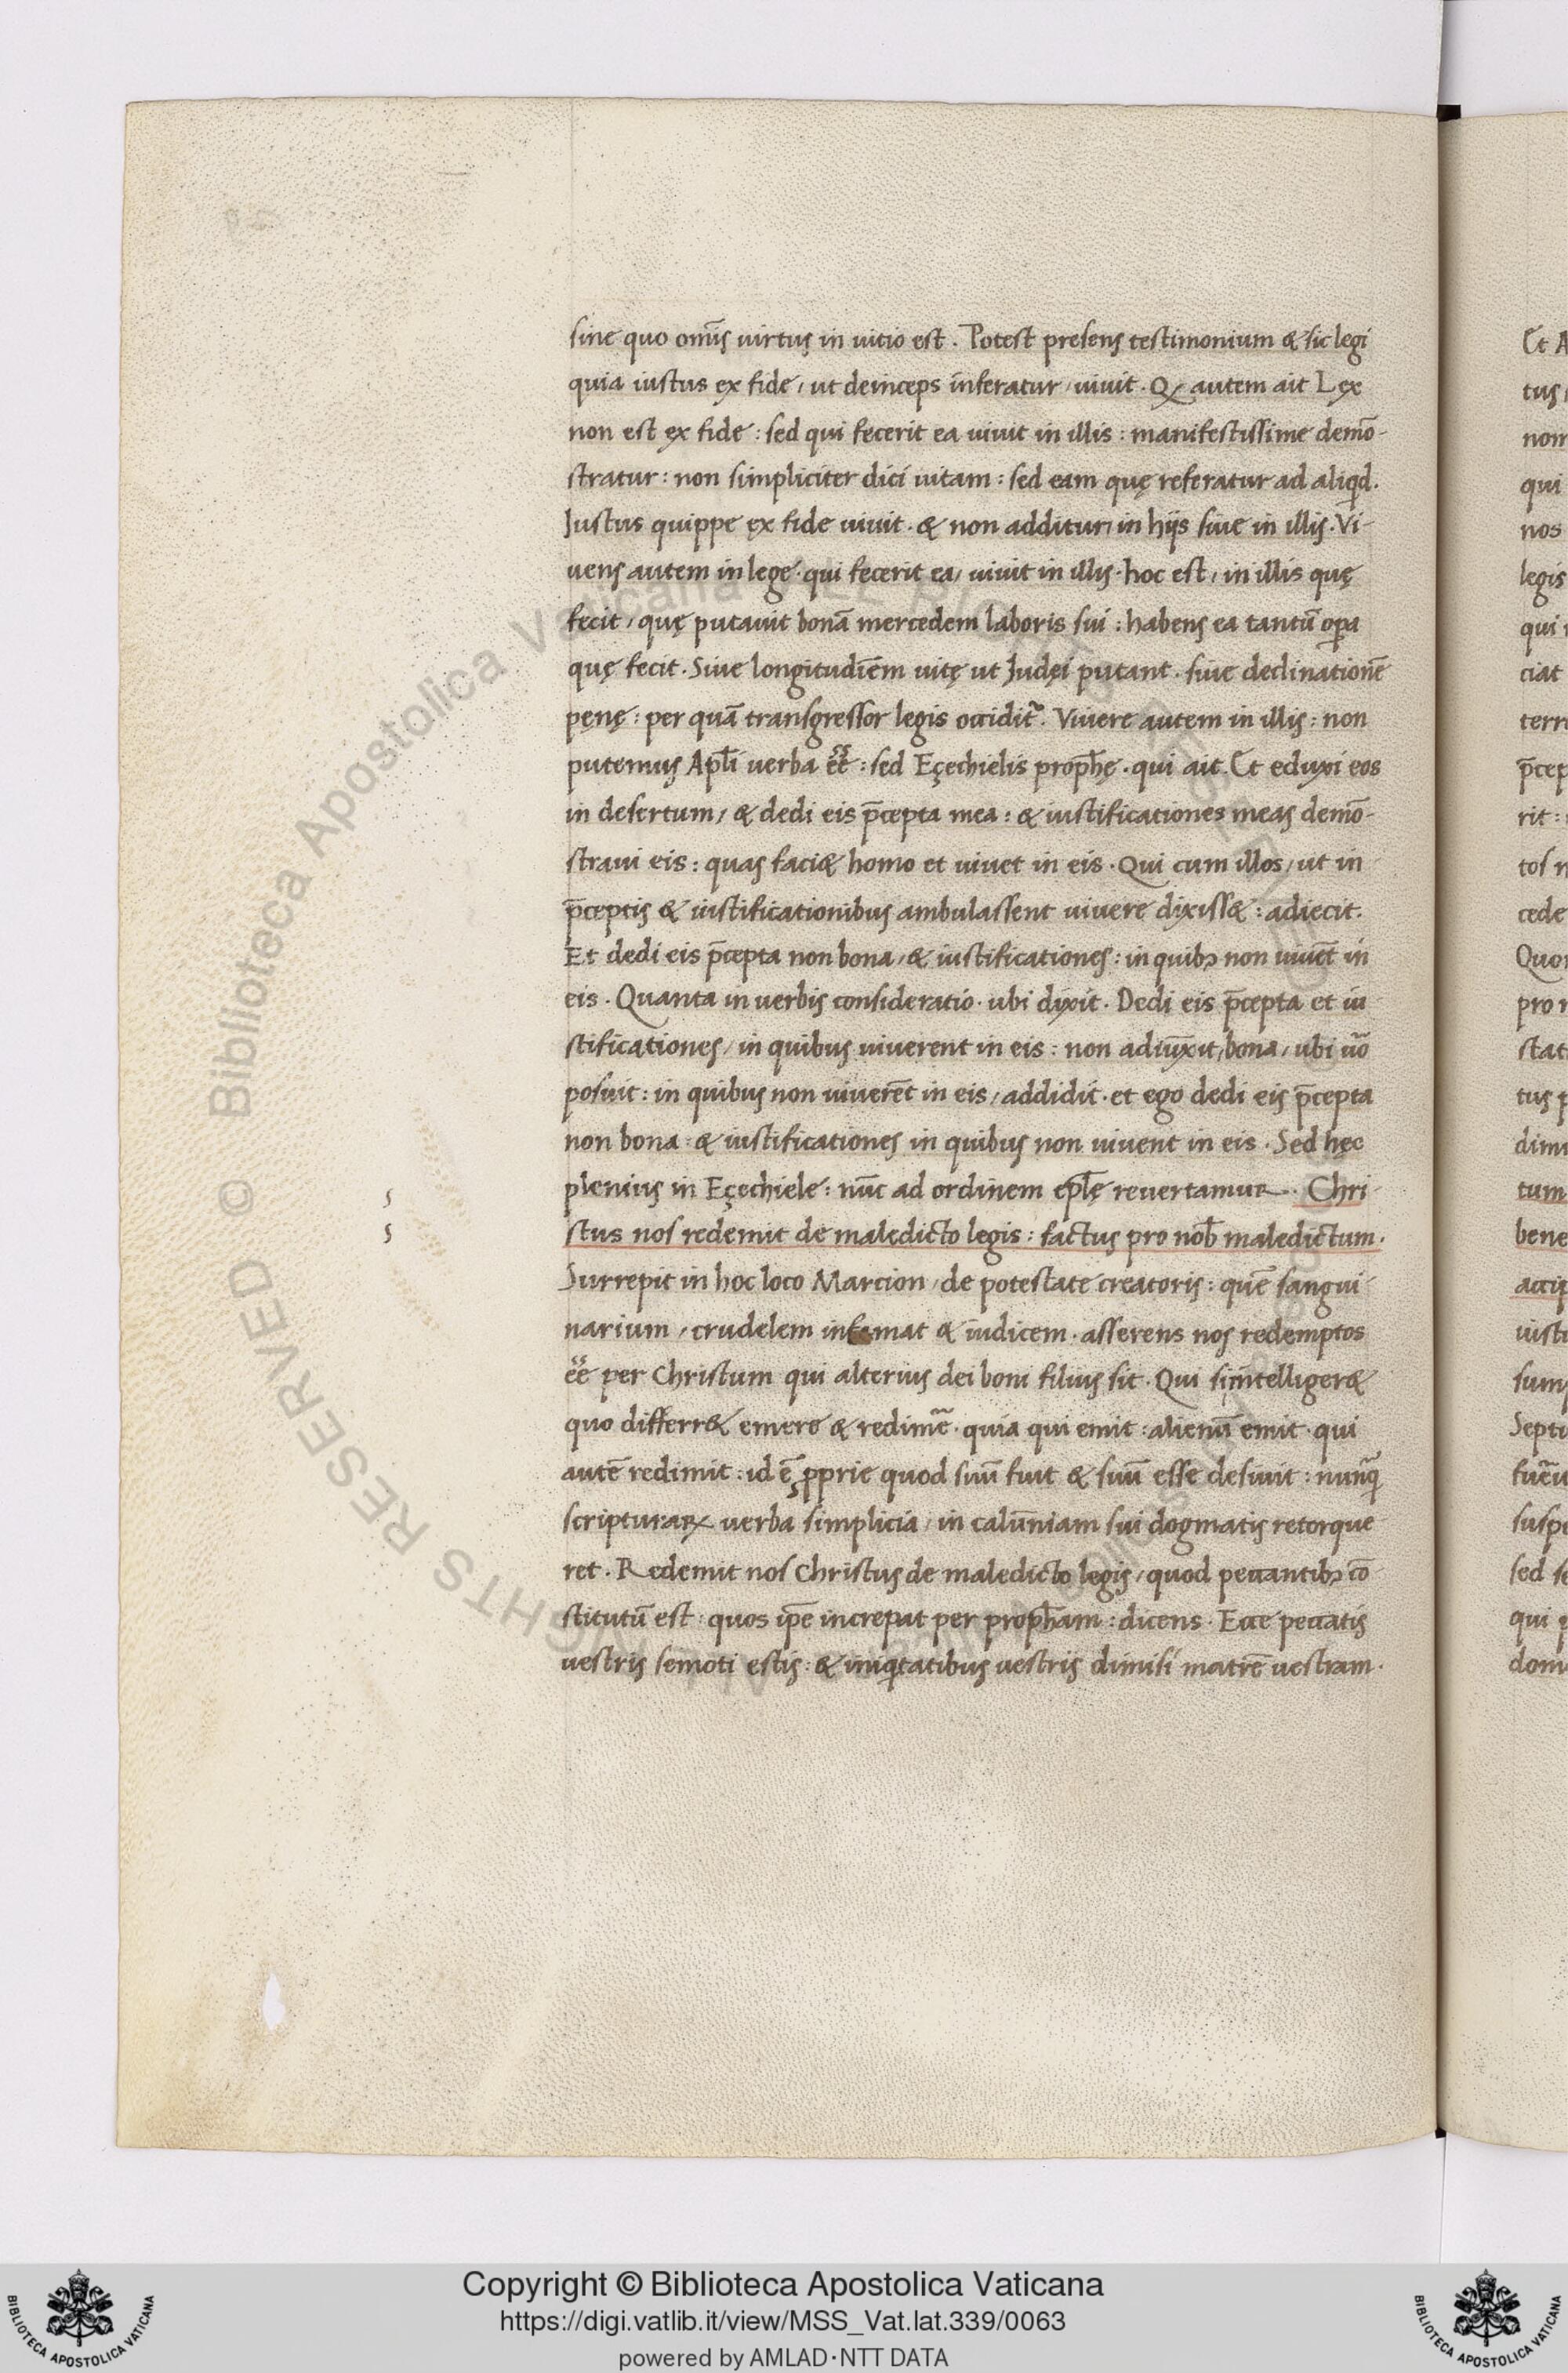 sine quo om̄is uirtus in uitio est . Potest presens testimonium & sic legi
quia iustus ex fide / ut deinceps inferatur / uiuit . Qꝫ autem ait Lex
non est ex fide : sed qui fecerit ea uiuit in illis : manifestissime demō-
stratur : non simpliciter dici uitam : sed eam quę referatur ad aliqd.
Justus quippe ex fide uiuit . & non additur / in hijs siue in illis . Vi-
uens autem in lege . qui fecerit ea / uiuit in illis . hoc est / in illis quę
fecit / quę putauit bonā mercedem laboris sui : habens ea tantū oꝑa
quę fecit . Siue longitudīem uitę ut Judęi putant . siue declinationē
penę : per quā transgressor legis occidit᷑. Viuere autem in illis : non
putemus Apl̄i uerba ēē : sed Eçechielis proph̄ę . qui ait. Et eduxi eos
in desertum / & dedi eis p̄cepta mea : & iustificationes meas demō-
straui eis : quas faci& homo et uiuet in eis . Qui cum illos / ut in
p̄ceptis & iustificationibus ambulassent uiuere dixiss& : adiecit.
Et dedi eis p̄cepta non bona / & iustificationes : in quibꝫ non uiuēt in
eis . Quanta in uerbis consideratio . ubi dixit . Dedi eis p̄cepta et iu
stificationes / in quibus uiuerent in eis : non adiūxit / bona / ubi ūo
posuit : in quibus non uiuerēt in eis / addidit . et ego dedi eis p̄cepta
non bona : & iustificationes in quibus non uiuent in eis . Sed hęc
plenius in Eçechiele : nūc ad ordinem epl̄ę reuertamur . Chri-
stus nos redemit de maledicto legis : factus pro nob̄ maledictum .
Surrepit in hoc loco Marcion / de potestate creatoris : quē sangui-
narium / crudelem infamat & iudicem . asserens nos redemptos
ēē per Christum qui alterius dei boni filius sit . Qui si īntelliger&
quo differr& emere & redimē . quia qui emit : alienū emit . qui
autē redimit : id ē ꝓprie quod suū fuit & suū esse desiuit : nunq̄
scripturaꝝ uerba simplicia / in calūniam sui dogmatis retorque
ret . Redemit nos Christus de maledicto legis / quod peccantibꝫ cō
stitutū est : quos ip̄e increpat per proph̄am : dicens . Ecce peccatis
uestris semoti estis : & iniqtatibus uestris dimisi matrē uestram .
Copyright © Biblioteca Apostolica Vaticana
https://digi.vatlib.it/view/MSS_Vat.lat.339/0063
powered by AMLAD·NTT DATA